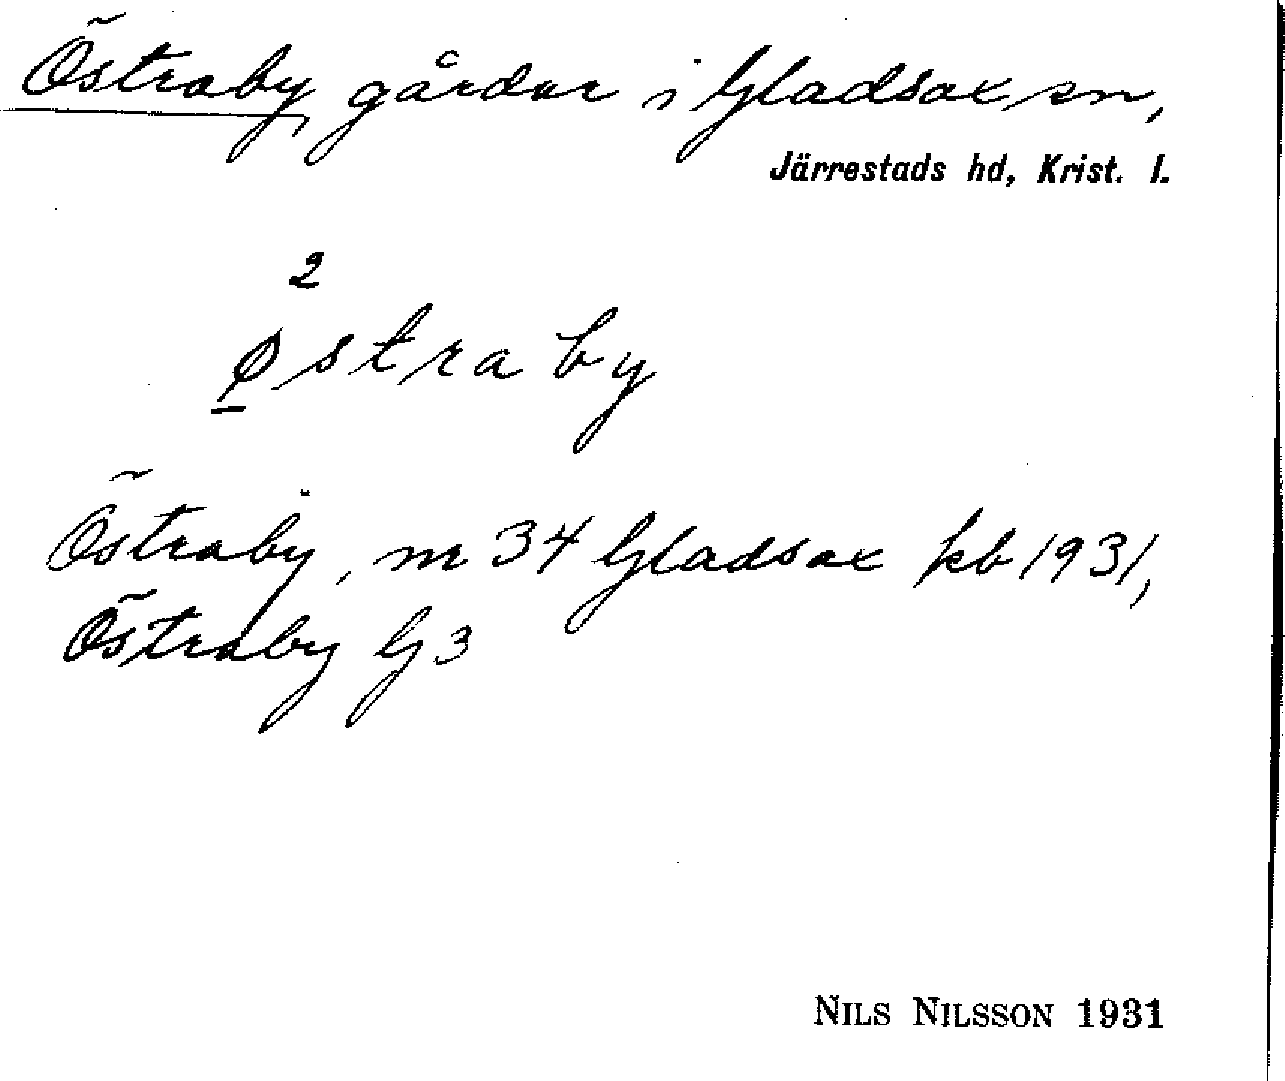 Östraby, gårdar i Gladsax sn,
Järrestads hd, Krist. l.
2
østraby
Östraby, nr 34 Gladsax kb 1931,
Östraby G3
NILS NILSSON 1931